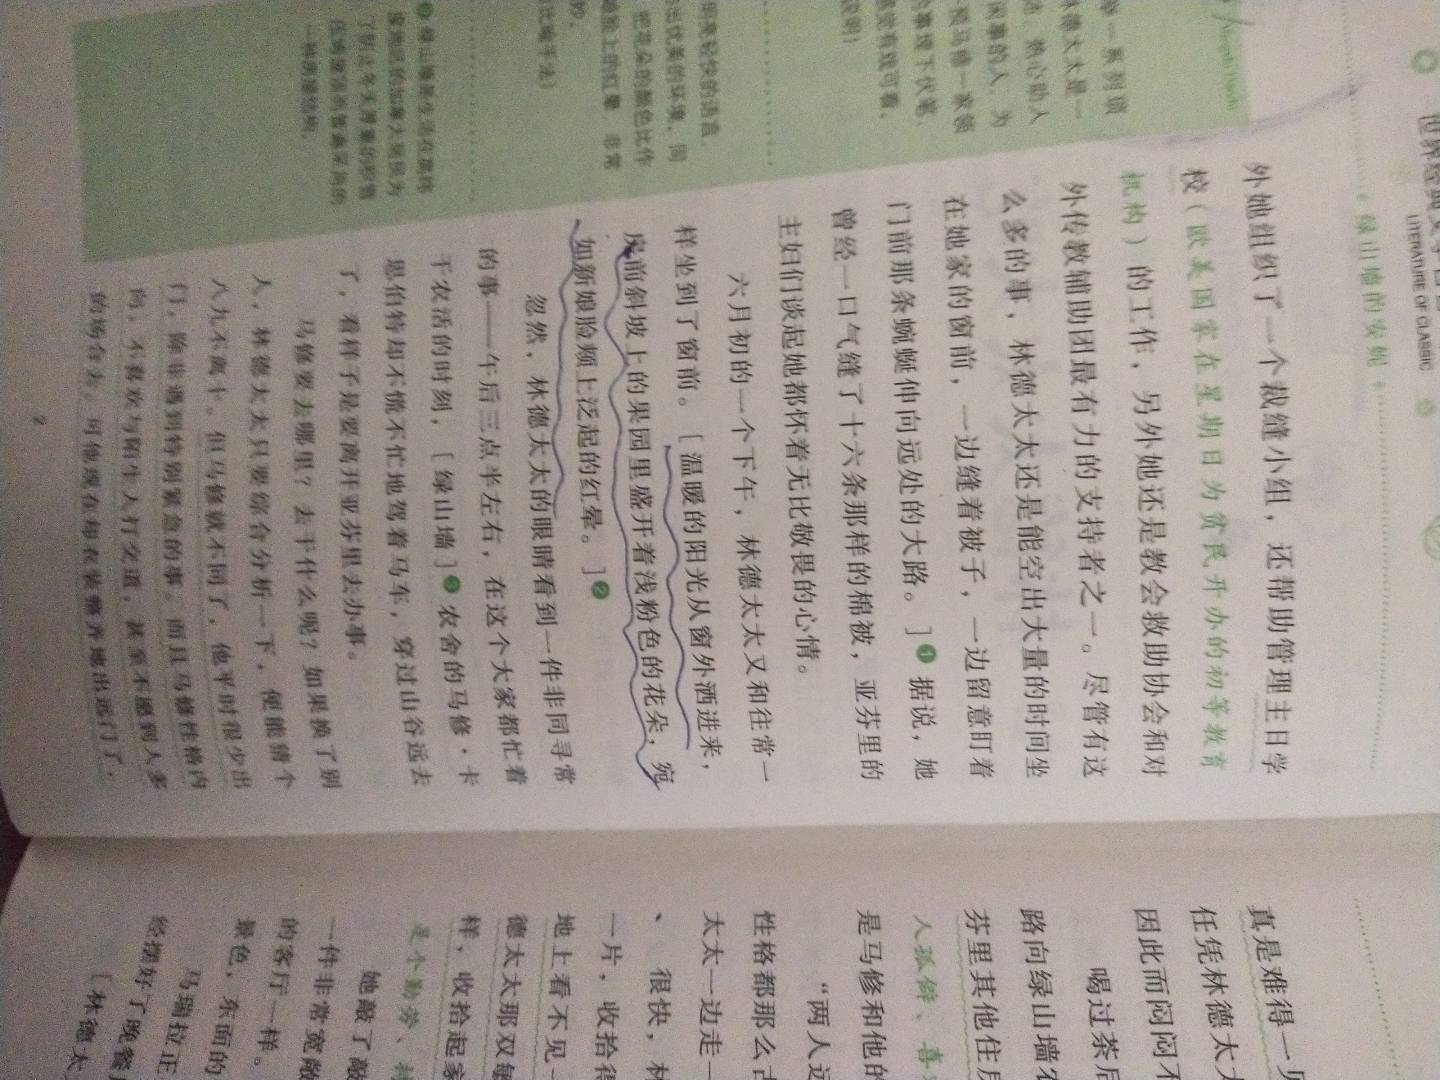 LITERATURE OF CLASSIC
绿山墙的安妮
外她组织了一个裁缝小组，还帮助管理主日学
校（欧美国家在星期日为贫民开办的初等教育
机构）的工作，另外她还是教会救助协会和对
外传教辅助团最有力的支持者之一。尽管有这
么多的事，林德太太还是能空出大量的时间坐
在她家的窗前，一边缝着被子，一边留意盯着
门前那条蜿蜒伸向远处的大路。］❶据说，她
曾经一口气缝了十六条那样的棉被，亚芬里的
主妇们谈起她都怀着无比敬畏的心情。
六月初的一个下午，林德太太又和往常一
样坐到了窗前。［温暖的阳光从窗外洒进来，
房前斜坡上的果园里盛开着浅粉色的花朵，宛
如新娘脸颊上泛起的红晕。］❷
忽然，林德太太的眼睛看到一件非同寻常
的事——午后三点半左右，在这个大家都忙着
干农活的时刻，［绿山墙］❸农舍的马修·卡
思伯特却不慌不忙地驾着马车，穿过山谷远去
了，看样子是要离开亚芬里去办事。
马修要去哪里？去干什么呢？如果换了别
人，林德太太只要综合分析一下，便能猜个
八九不离十。但马修就不同了，他平时很少出
门，除非遇到特别紧急的事。而且马修性格内
向，不喜欢与陌生人打交道，甚至不愿到人多
的场合去，可他现在却衣装整齐地出远门了，
2
系列琐
林德太太是一
热心助人
闲事的人，为
马修一家领
事埋下伏笔，
感觉有戏可看。
说明）
明亮轻快的语言，
出优美的环境。同
把花朵的颜色比作
脸上的红晕，非常
比喻手法）
真是难得一见
任凭林德太太
因此而闷闷不
喝过茶后
路向绿山墙农
芬里其他住
人孤僻、喜
是马修和他的
“两人远
性格都那么古
太太一边走一
很快，林
一片，收拾得
地上看不见一
德太太那双敏
样，收拾起家
是个勤劳、
她敲了敲
一件非常宽敞
的客厅一样。
景色，东面的
马瑞拉正
经摆好了晚餐
［林德太